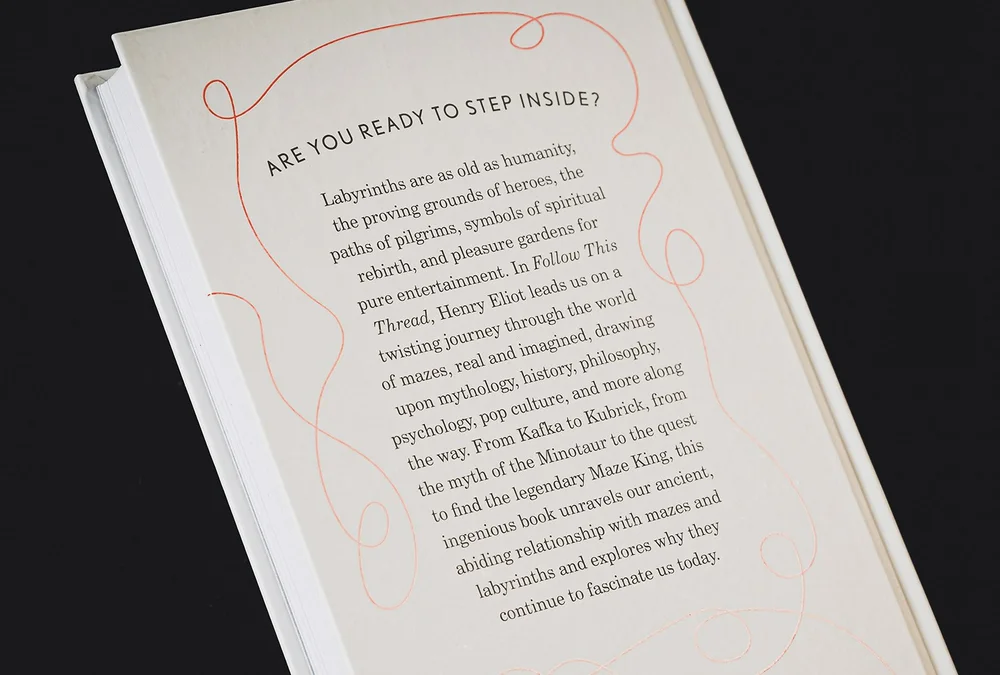 ARE YOU READY TO STEP INSIDE?
Labyrinths are as old as humanity,
the proving grounds of heroes, the
paths of pilgrims, symbols of spiritual
rebirth, and pleasure gardens for
pure entertainment. In Follow This
Thread, Henry Eliot leads us on a
twisting journey through the world
of mazes, real and imagined, drawing
upon mythology, history, philosophy,
psychology, pop culture, and more along
the way. From Kafka to Kubrick, from
the myth of the Minotaur to the quest
to find the legendary Maze King, this
ingenious book unravels our ancient,
abiding relationship with mazes and
labyrinths and explores why they
continue to fascinate us today.